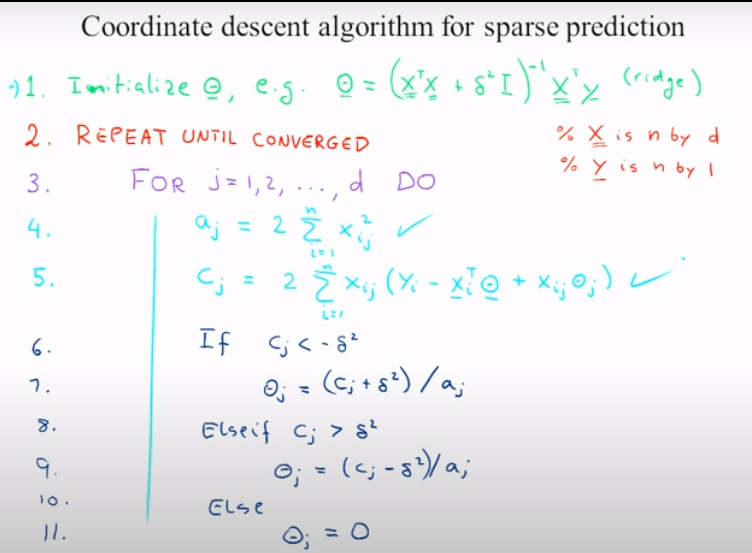 Coordinate descent algorithm for sparse prediction
→1. Initialize θ, e.g. θ = (XᵀX + δ²I)⁻¹ Xᵀy (ridge)
2. REPEAT UNTIL CONVERGED % X is n by d
% Y is n by 1
3. FOR j=1,2, ..., d DO
4. aⱼ = 2 Σᵢ₌₁ⁿ xᵢⱼ² ✓
5. cⱼ = 2 Σᵢ₌₁ⁿ xᵢⱼ (yᵢ - xᵢᵀθ + xᵢⱼθⱼ) ✓
6. If cⱼ < - δ²
7. θⱼ = (cⱼ + δ²) / aⱼ
8. Elseif cⱼ > δ²
9. θⱼ = (cⱼ - δ²)/ aⱼ
10. Else
11. θⱼ = 0